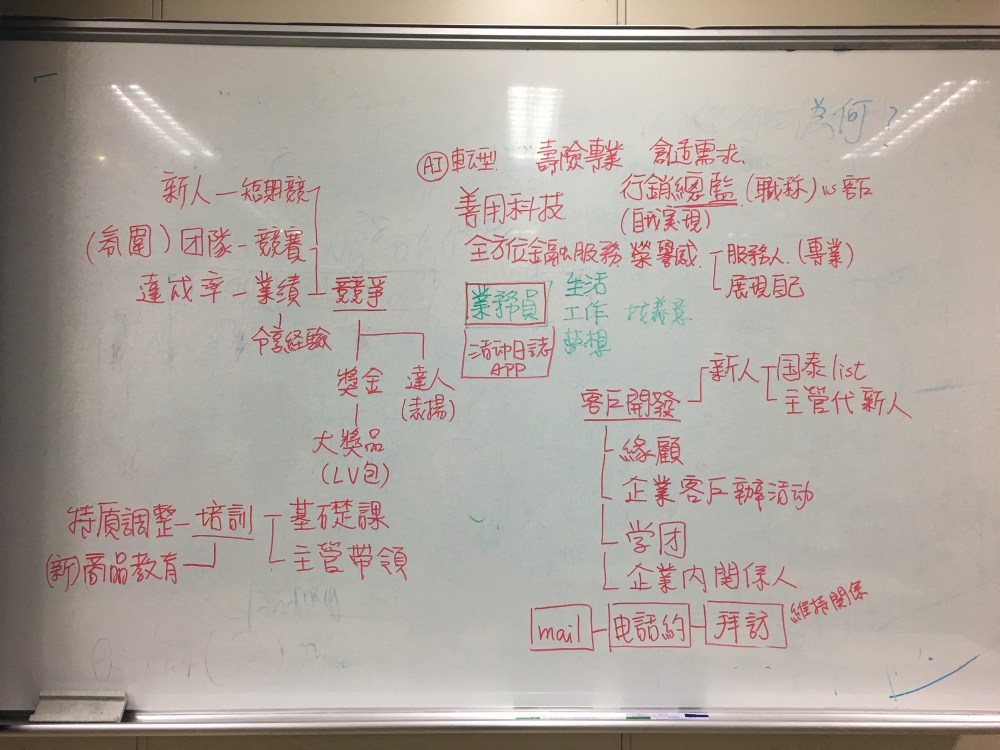 為何?
AI 転型 壽險專業 創造需求、
善用科技 行銷總監(職称) vs 客戶
(自我実現)
全方位金融服務 榮譽感
服務人(專業)
展現自己
新人-短期競
(氛圍)団隊-競賽
達成率-業績-競爭
分享経驗
獎金
達人
(表揚)
大獎品
(LV包)
業務員
生活
工作
夢想
活动日誌
APP
客戶開發
新人
国泰list
主管代新人
緣顧
企業客戶辦活动
学团
企業內関係人
mail-电話約-拜訪
維持関係
特质調整-培訓
基礎課
主管帶領
(新)商品教育